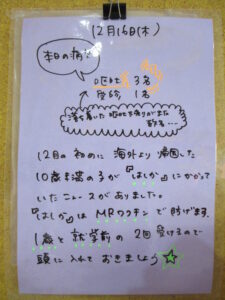 12月16日(木)
本日の病さ
嘔吐 3名
発診 1名
落ち着いた嘔吐もありがまた
12月の初めに海外より帰国した
10歳未満の子が『はしか』にかかって
いたニュースがありました。
『はしか』はMRワクチンで防げます。
1歳と就学前の2回受けるので
頭に入れておきましょう